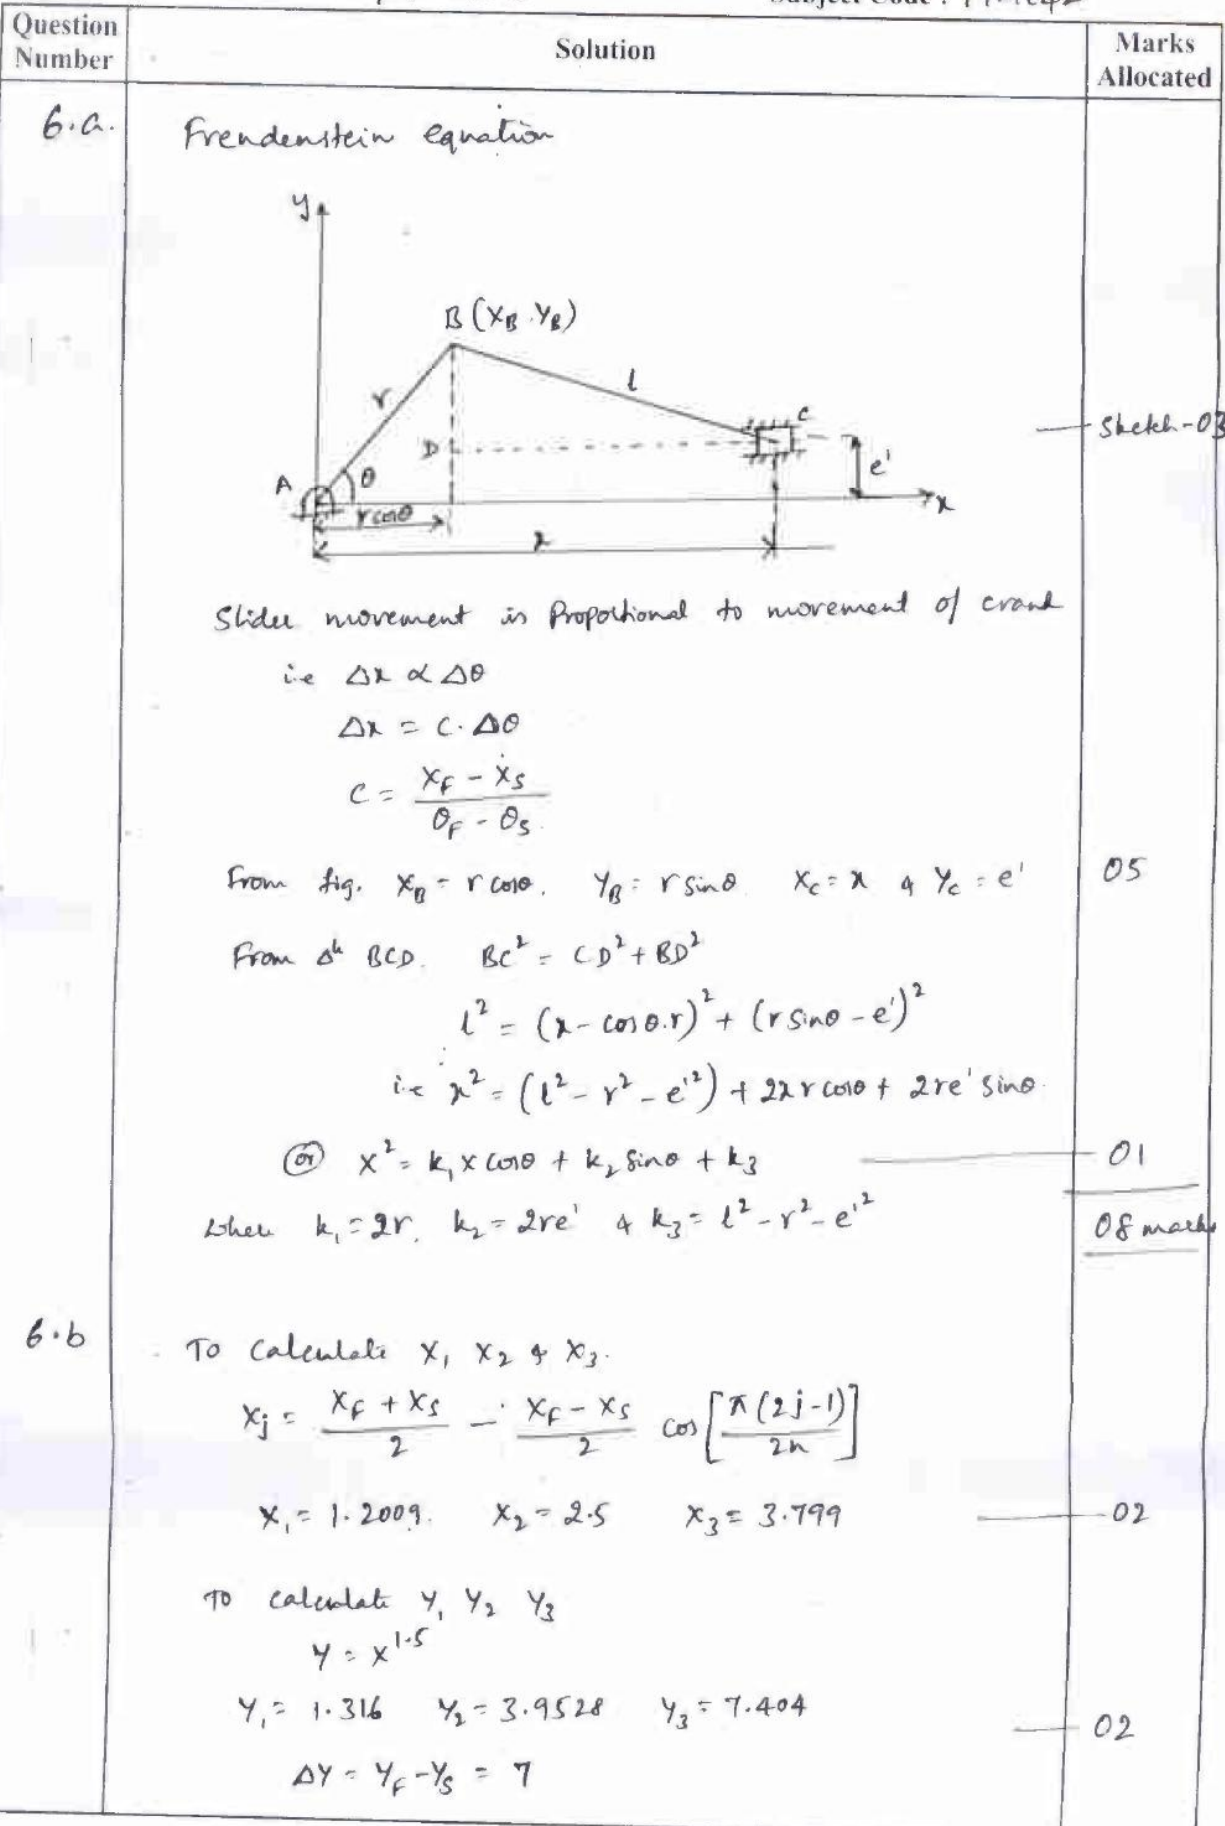 Subject Code :
Question Number
Solution
Marks Allocated
6.a.
Frendenstein equation
y
B (XB . YB)
r
l
c
Sketch - 03
D
e'
A
θ
r cosθ
x
x
Slider movement is Proportional to movement of crank
i.e Δx ∝ Δθ
Δx = C. Δθ
C = (XF - XS) / (θF - θS)
From fig. XB = r cosθ. YB = r sinθ XC = x & YC = e'
05
From Δle BCD. BC² = CD² + BD²
l² = (x - cosθ.r)² + (r sinθ - e')²
i.e x² = (l² - r² - e'²) + 2xr cosθ + 2re' sinθ.
(or) x² = k₁ x cosθ + k₂ sinθ + k₃
01
where k₁ = 2r, k₂ = 2re' & k₃ = l² - r² - e'²
08 marks
6.b
To calculate X₁ X₂ & X₃.
Xj = (XF + XS)/2 - (XF - XS)/2 cos [π(2j-1)/2n]
X₁ = 1.2009. X₂ = 2.5 X₃ = 3.799
02
To calculate Y₁ Y₂ Y₃
Y = x^1.5
Y₁ = 1.316 Y₂ = 3.9528 Y₃ = 7.404
02
ΔY = YF - YS = 7